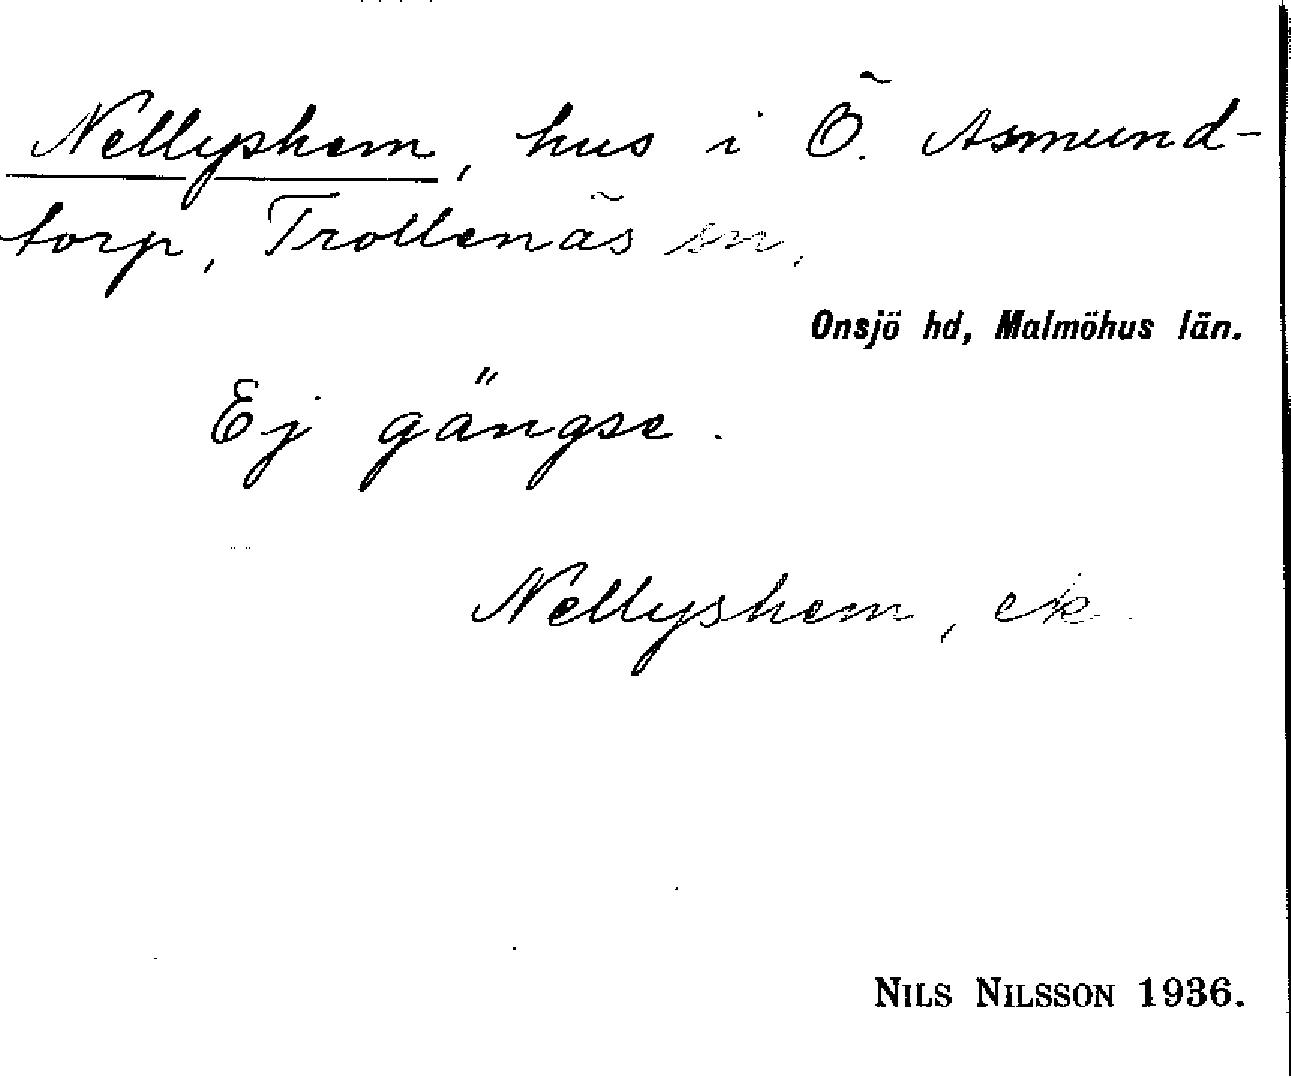 Nellyshem, hus i Ö. Asmund-
torp, Trollenäs sn,
Onsjö hd, Malmöhus län.
Ej gängse.
Nellyshem, ek.
Nils Nilsson 1936.